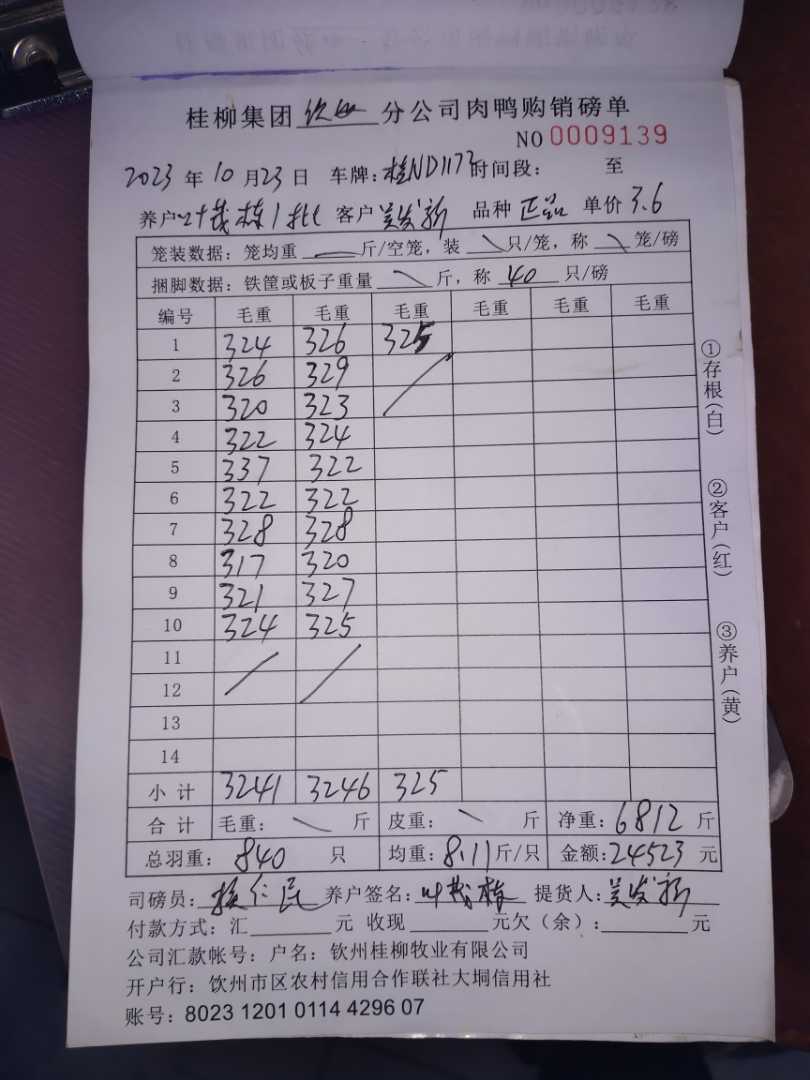 桂柳集团 钦州 分公司肉鸭购销磅单
NO 0009139
2023 年 10 月 23 日 车牌: 桂ND1173 时间段: 至
养户 叶茂栋1批 客户 吴发新 品种 正品 单价 3.6
笼装数据: 笼均重 — 斤/空笼, 装 \ 只/笼, 称 \ 笼/磅
捆脚数据: 铁筐或板子重量 \ 斤, 称 40 只/磅
编号 毛重 毛重 毛重 毛重 毛重 毛重
1 324 326 325
2 326 329 /
3 320 323
4 322 324
5 337 322
6 322 322
7 328 328
8 317 320
9 321 327
10 324 325
11 / /
12
13
14
小计 3241 3246 325
合计 毛重: \ 斤 皮重: \ 斤 净重: 6812 斤
总羽重: 840 只 均重: 8.11 斤/只 金额: 24523 元
司磅员: 仁民 养户签名: 叶茂栋 提货人: 吴发新
付款方式: 汇 元 收现 元欠(余): 元
公司汇款帐号: 户名: 钦州桂柳牧业有限公司
开户行: 钦州市区农村信用合作联社大垌信用社
账号: 8023 1201 0114 4296 07
①存根(白)
②客户(红)
③养户(黄)